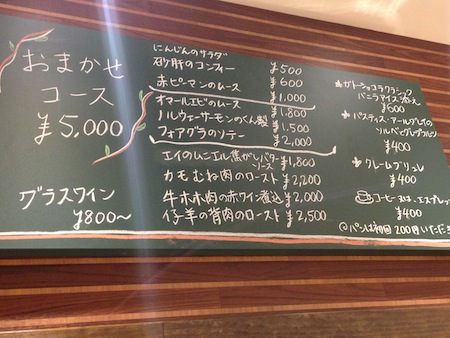 おまかせ
コース
¥5,000
グラスワイン
¥800〜
にんじんのサラダ
砂肝のコンフィー ¥500
赤ピーマンのムース ¥600
オマールエビのムース ¥1,000
ノルウェーサーモンのくん製 ¥1,800
フォアグラのソテー ¥1,500
¥2,000
エイのムニエル焦がしバター
ソース ¥1,800
カモむね肉のロースト ¥2,200
牛ホホ肉の赤ワイン煮込 ¥2,000
仔羊の背肉のロースト ¥2,500
ガトーショコラクラシック
バニラアイス添え
¥600
パスティス・アールグレイの
ソルベとグレープフルーツ
¥400
クレームブリュレ
¥400
コーヒー又は、エスプレッ
¥400
パンは初回200円いただき